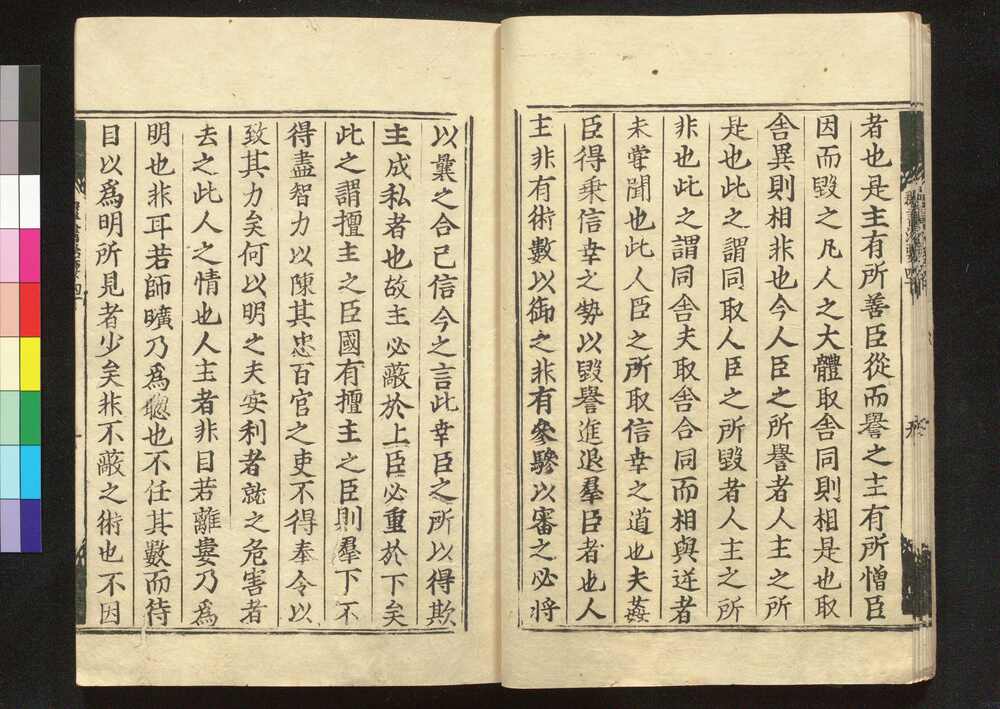 者也是主有所善臣從而譽之主有所憎臣
因而毀之凡人之大體取舍同則相是也取
舍異則相非也今人臣之所譽者人主之所
是也此之謂同取人臣之所毀者人主之所
非也此之謂同舍夫取舍合同而相與逆者
未甞聞也此人臣之所取信幸之道也夫姦
臣得乗信幸之勢以毀譽進退羣臣者也人
主非有術數以御之非有參驂以審之必將
以曩之合己信今之言此幸臣之所以得欺
主成私者也故主必蔽於上臣必重於下矣
此之謂擅主之臣國有擅主之臣則羣下不
得盡智力以陳其忠百官之吏不得奉令以
致其力矣何以明之夫安利者就之危害者
去之此人之情也人主者非目若離婁乃爲
明也非耳若師曠乃爲聦也不任其數而待
目以爲明所見者少矣非不蔽之術也不因